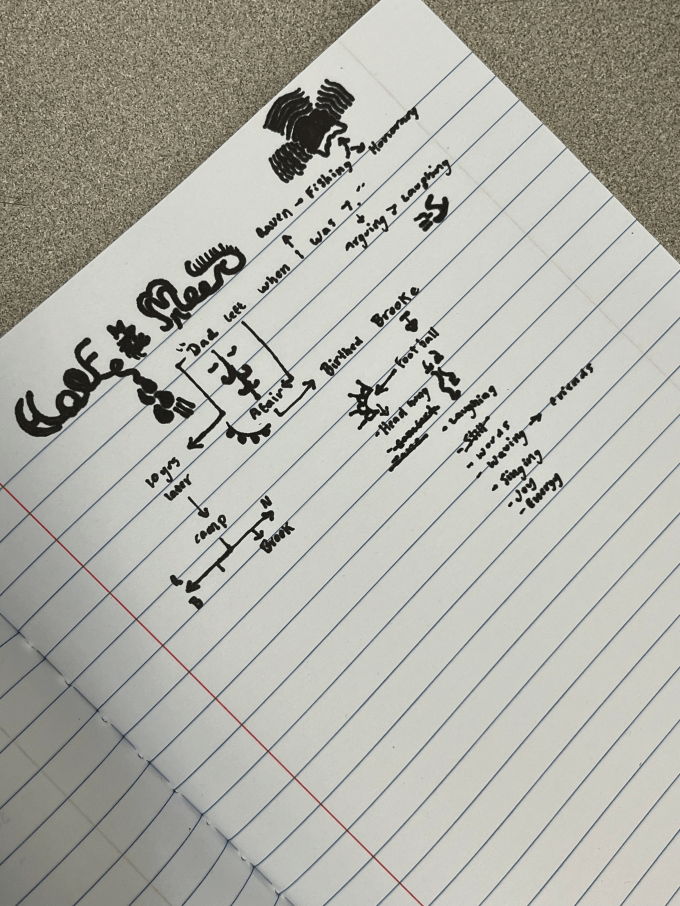 Half
Raven - Fishing → Hommong
Dad left when I was 7..
Arguing > Laughing
Affair
Birthed Brooke
Football
- Head long
- Laughing
- words
- waving → friends
- Singing
- Joy
- Energy
10 yrs
later
camp
N
Brook
B